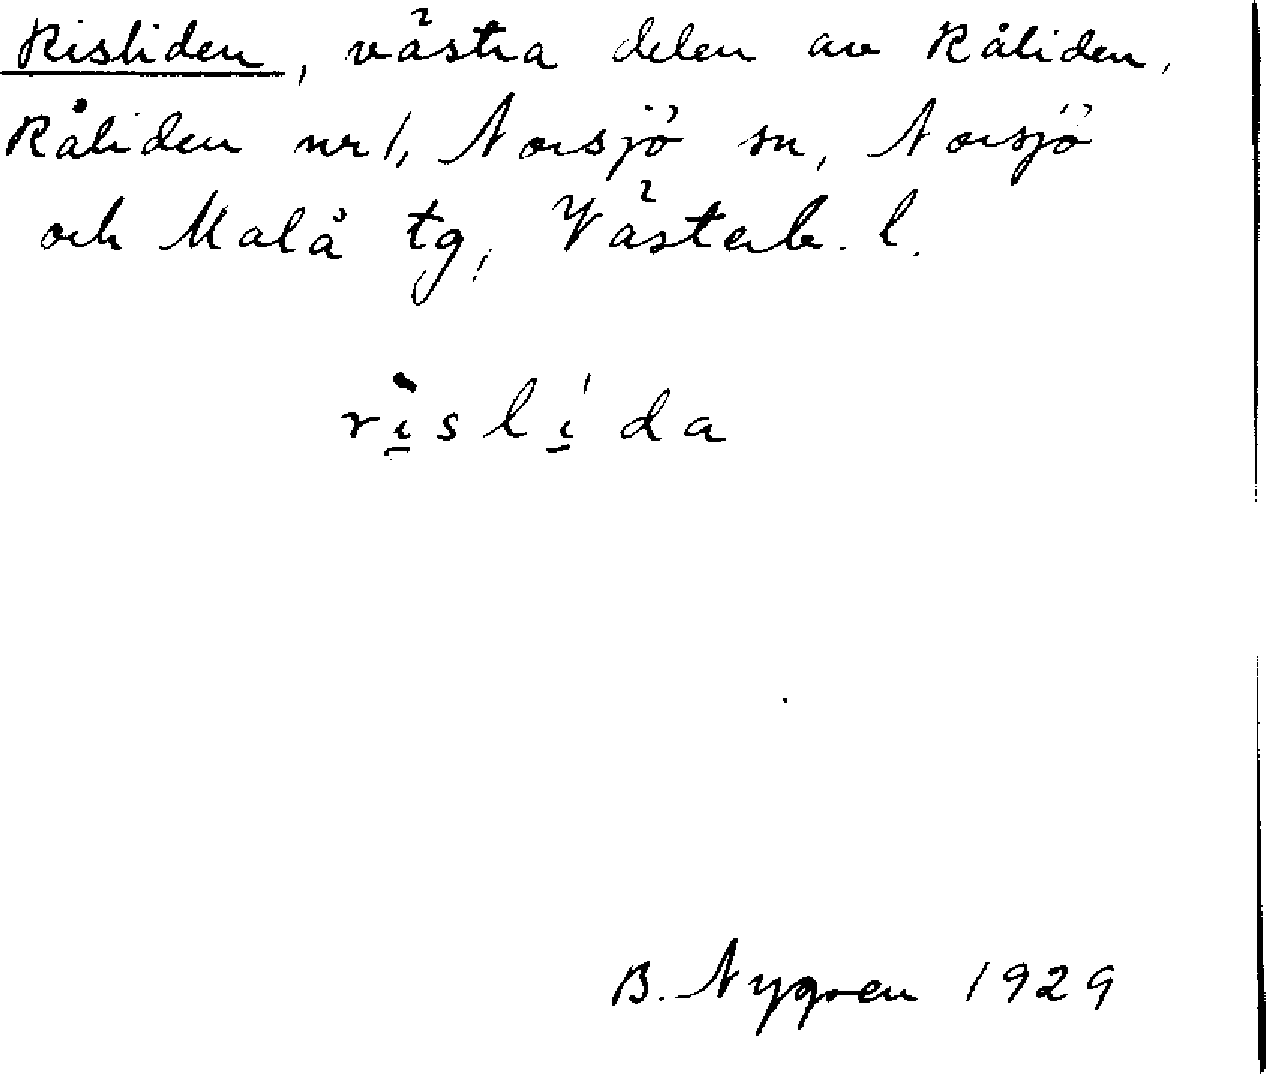 Risliden, västra delen av Råliden,
Råliden nr 1, Norsjö sn, Norsjö
och Malå tg, Västerb. l.
rı̱̀slı̱́da
B. Nygren 1929